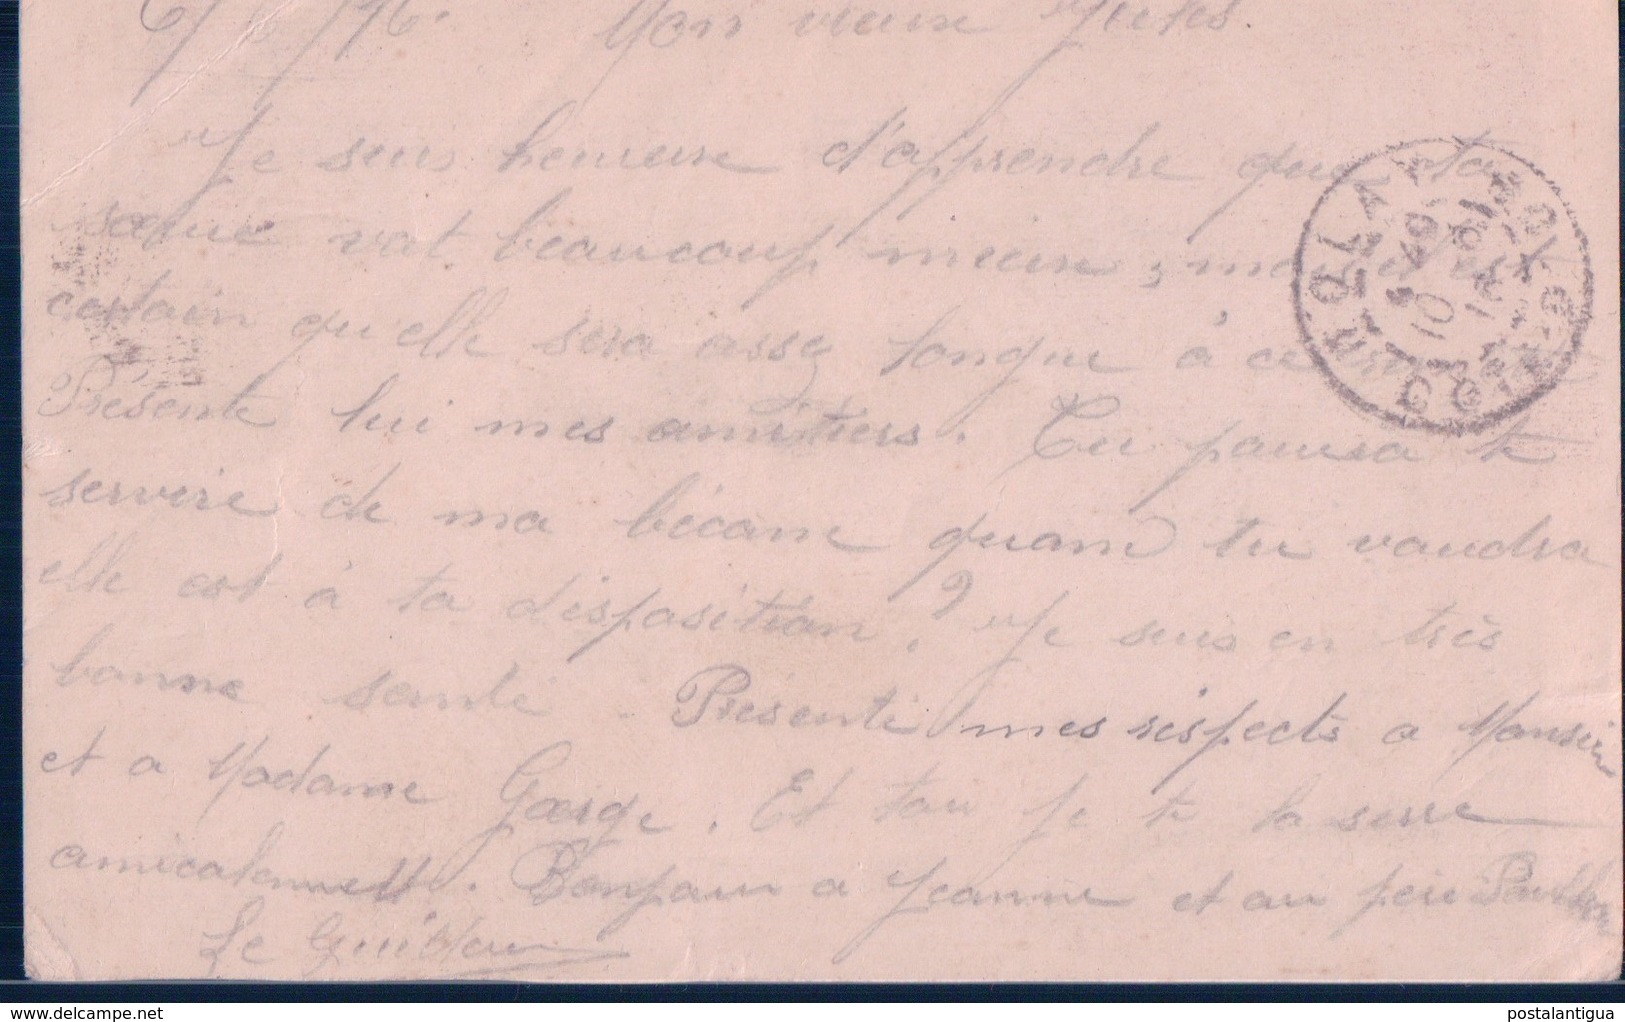 6/6/16. Mon vieux Jules.
Je suis heureuse d'apprendre que ta
sœur vat beaucoup mieux, mais
certain qu'elle sera assez longue à ce
Présente lui mes amitiers. Tu poura te
servire de ma bécane quand tu voudra
elle est à ta disposition. Je suis en très
bonne santé. Présente mes respects a Monsieur
et a Madame George. Et toi je te la serre
amicalement. Bonjour a Jeanne et au père
Le
est-hollandluxembourg
postalantigua